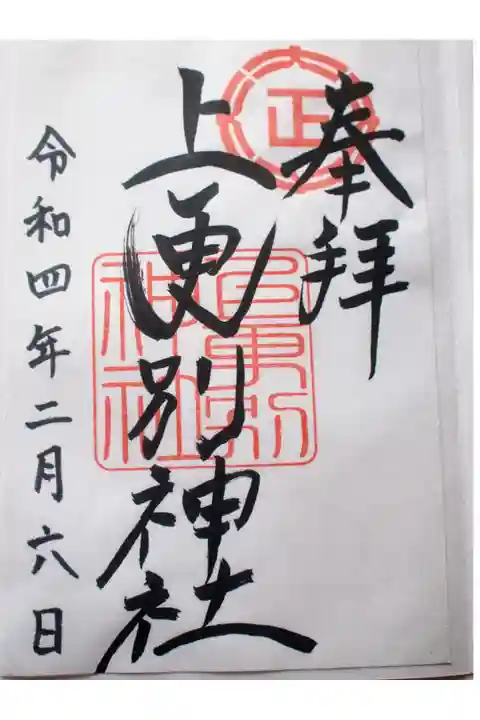 奉拝
上更別神社
令和四年二月六日
大正
上更別
神社